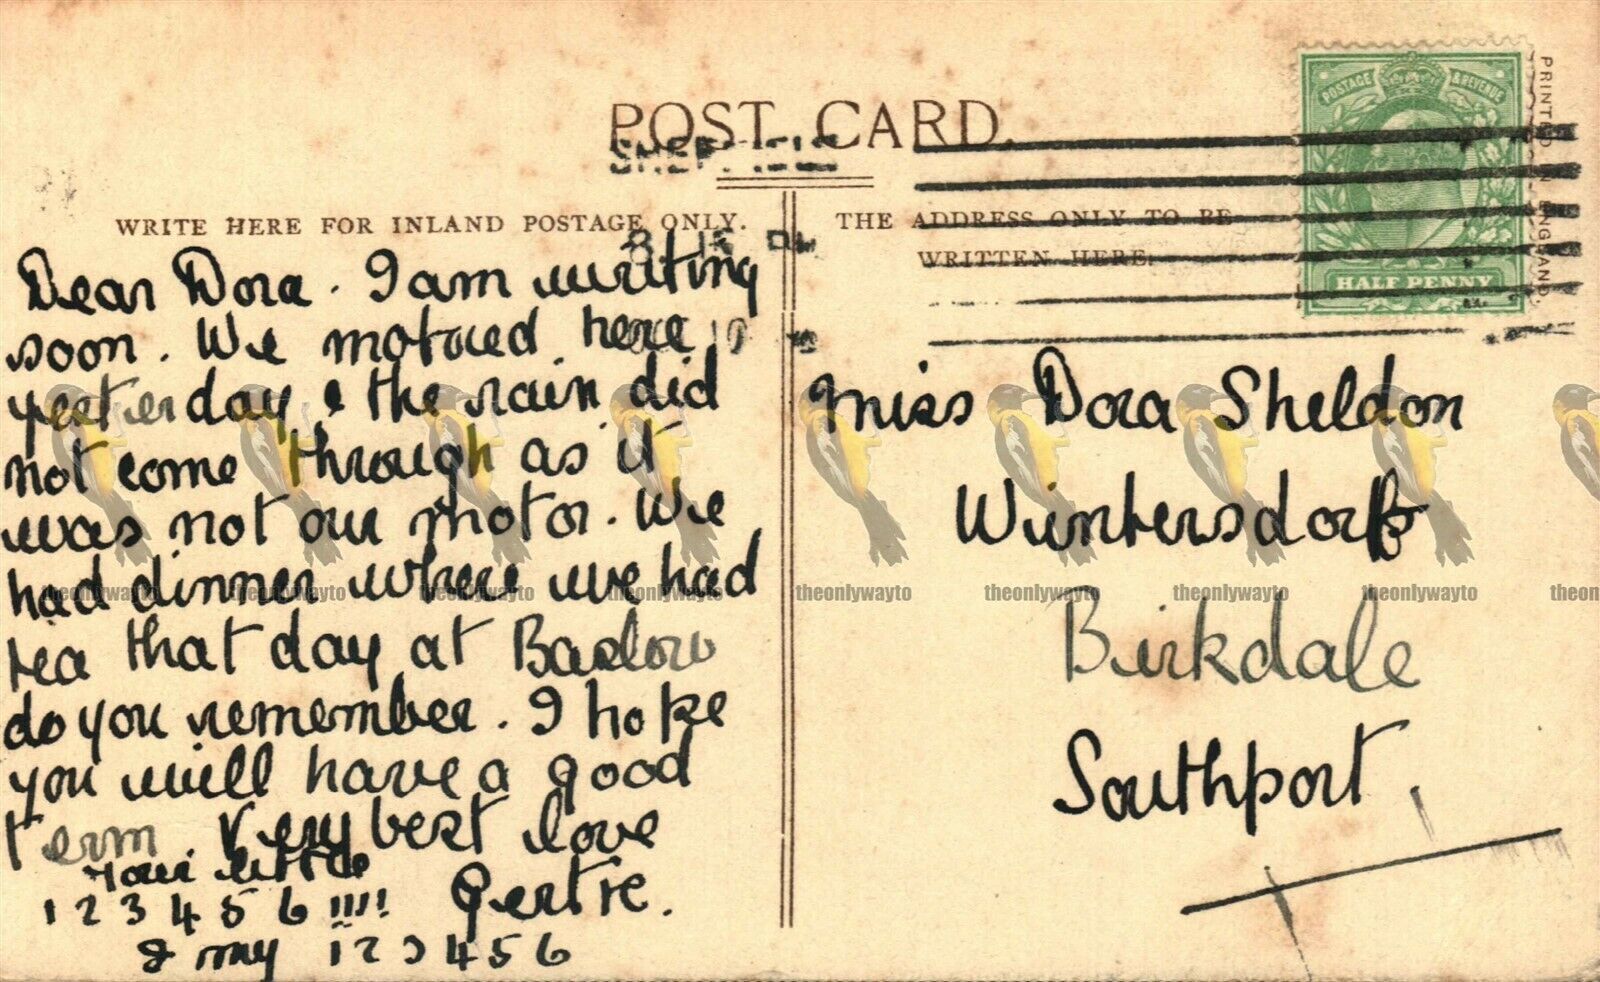 POST CARD.
SHEFFIELD
WRITE HERE FOR INLAND POSTAGE ONLY.
THE ADDRESS ONLY TO BE
WRITTEN HERE.
POSTAGE & REVENUE
HALF PENNY
PRINTED IN ENGLAND.
Dear Dora. I am writing
soon. We motored here
yesterday & the rain did
not come through as it
was not our motor. We
had dinner where we had
tea that day at Baslow
do you remember. I hope
you will have a good
term. Very best love
Your little
1 2 3 4 5 6 !!!!! Gertie.
& my 1 2 3 4 5 6
Miss Dora Sheldon
Wintersdorf
Birkdale
Southport.
theonlywayto theonlywayto theonlywayto theonlywayto theonlywayto theonlywayto theonlywayto theonlywayto theon